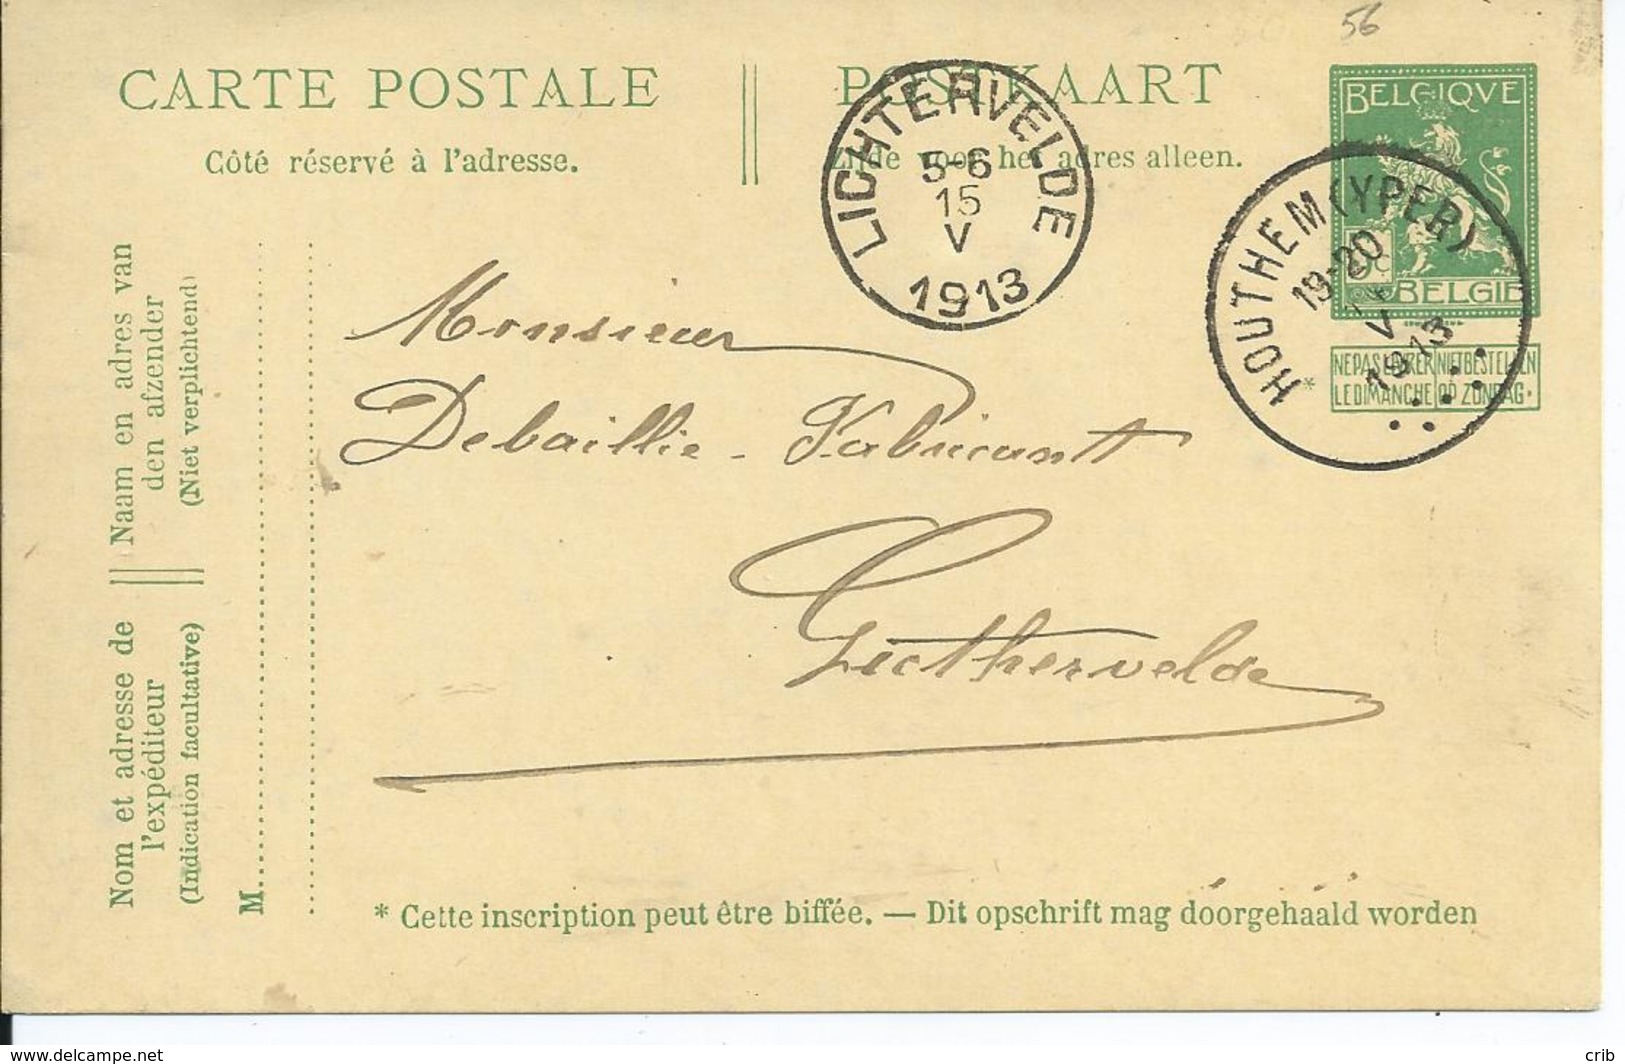 56
CARTE POSTALE
Côté réservé à l'adresse.
POSTKAART
Zijde voor het adres alleen.
BELGIQVE
5c
BELGIE
NE PAS LIVRER LE DIMANCHE
NIET BESTELLEN OP ZONDAG.
*
LICHTERVELDE
5-6
15
V
1913
HOUTHEM (YPER)
19-20
V
1913
Naam en adres van
den afzender
(Niet verplichtend)
Nom et adresse de
l'expéditeur
(Indication facultative)
M
Monsieur
Debaillie - Fabricant
Licthervelde
* Cette inscription peut être biffée. — Dit opschrift mag doorgehaald worden
www.delcampe.net
crib